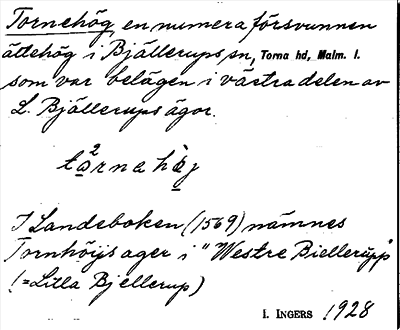 Tornehög, en numera försvunnen
ättehög i Bjällerups sn, Torna hd, Malm. l.
som var belägen i västra delen av
L. Bjällerups ägor.
tò²rnahò̤j
I Landeboken (1569) nämnes
Tornhöijs ager i "Westre Biellerupp"
(=Lilla Bjellerup)
I. INGERS 1928